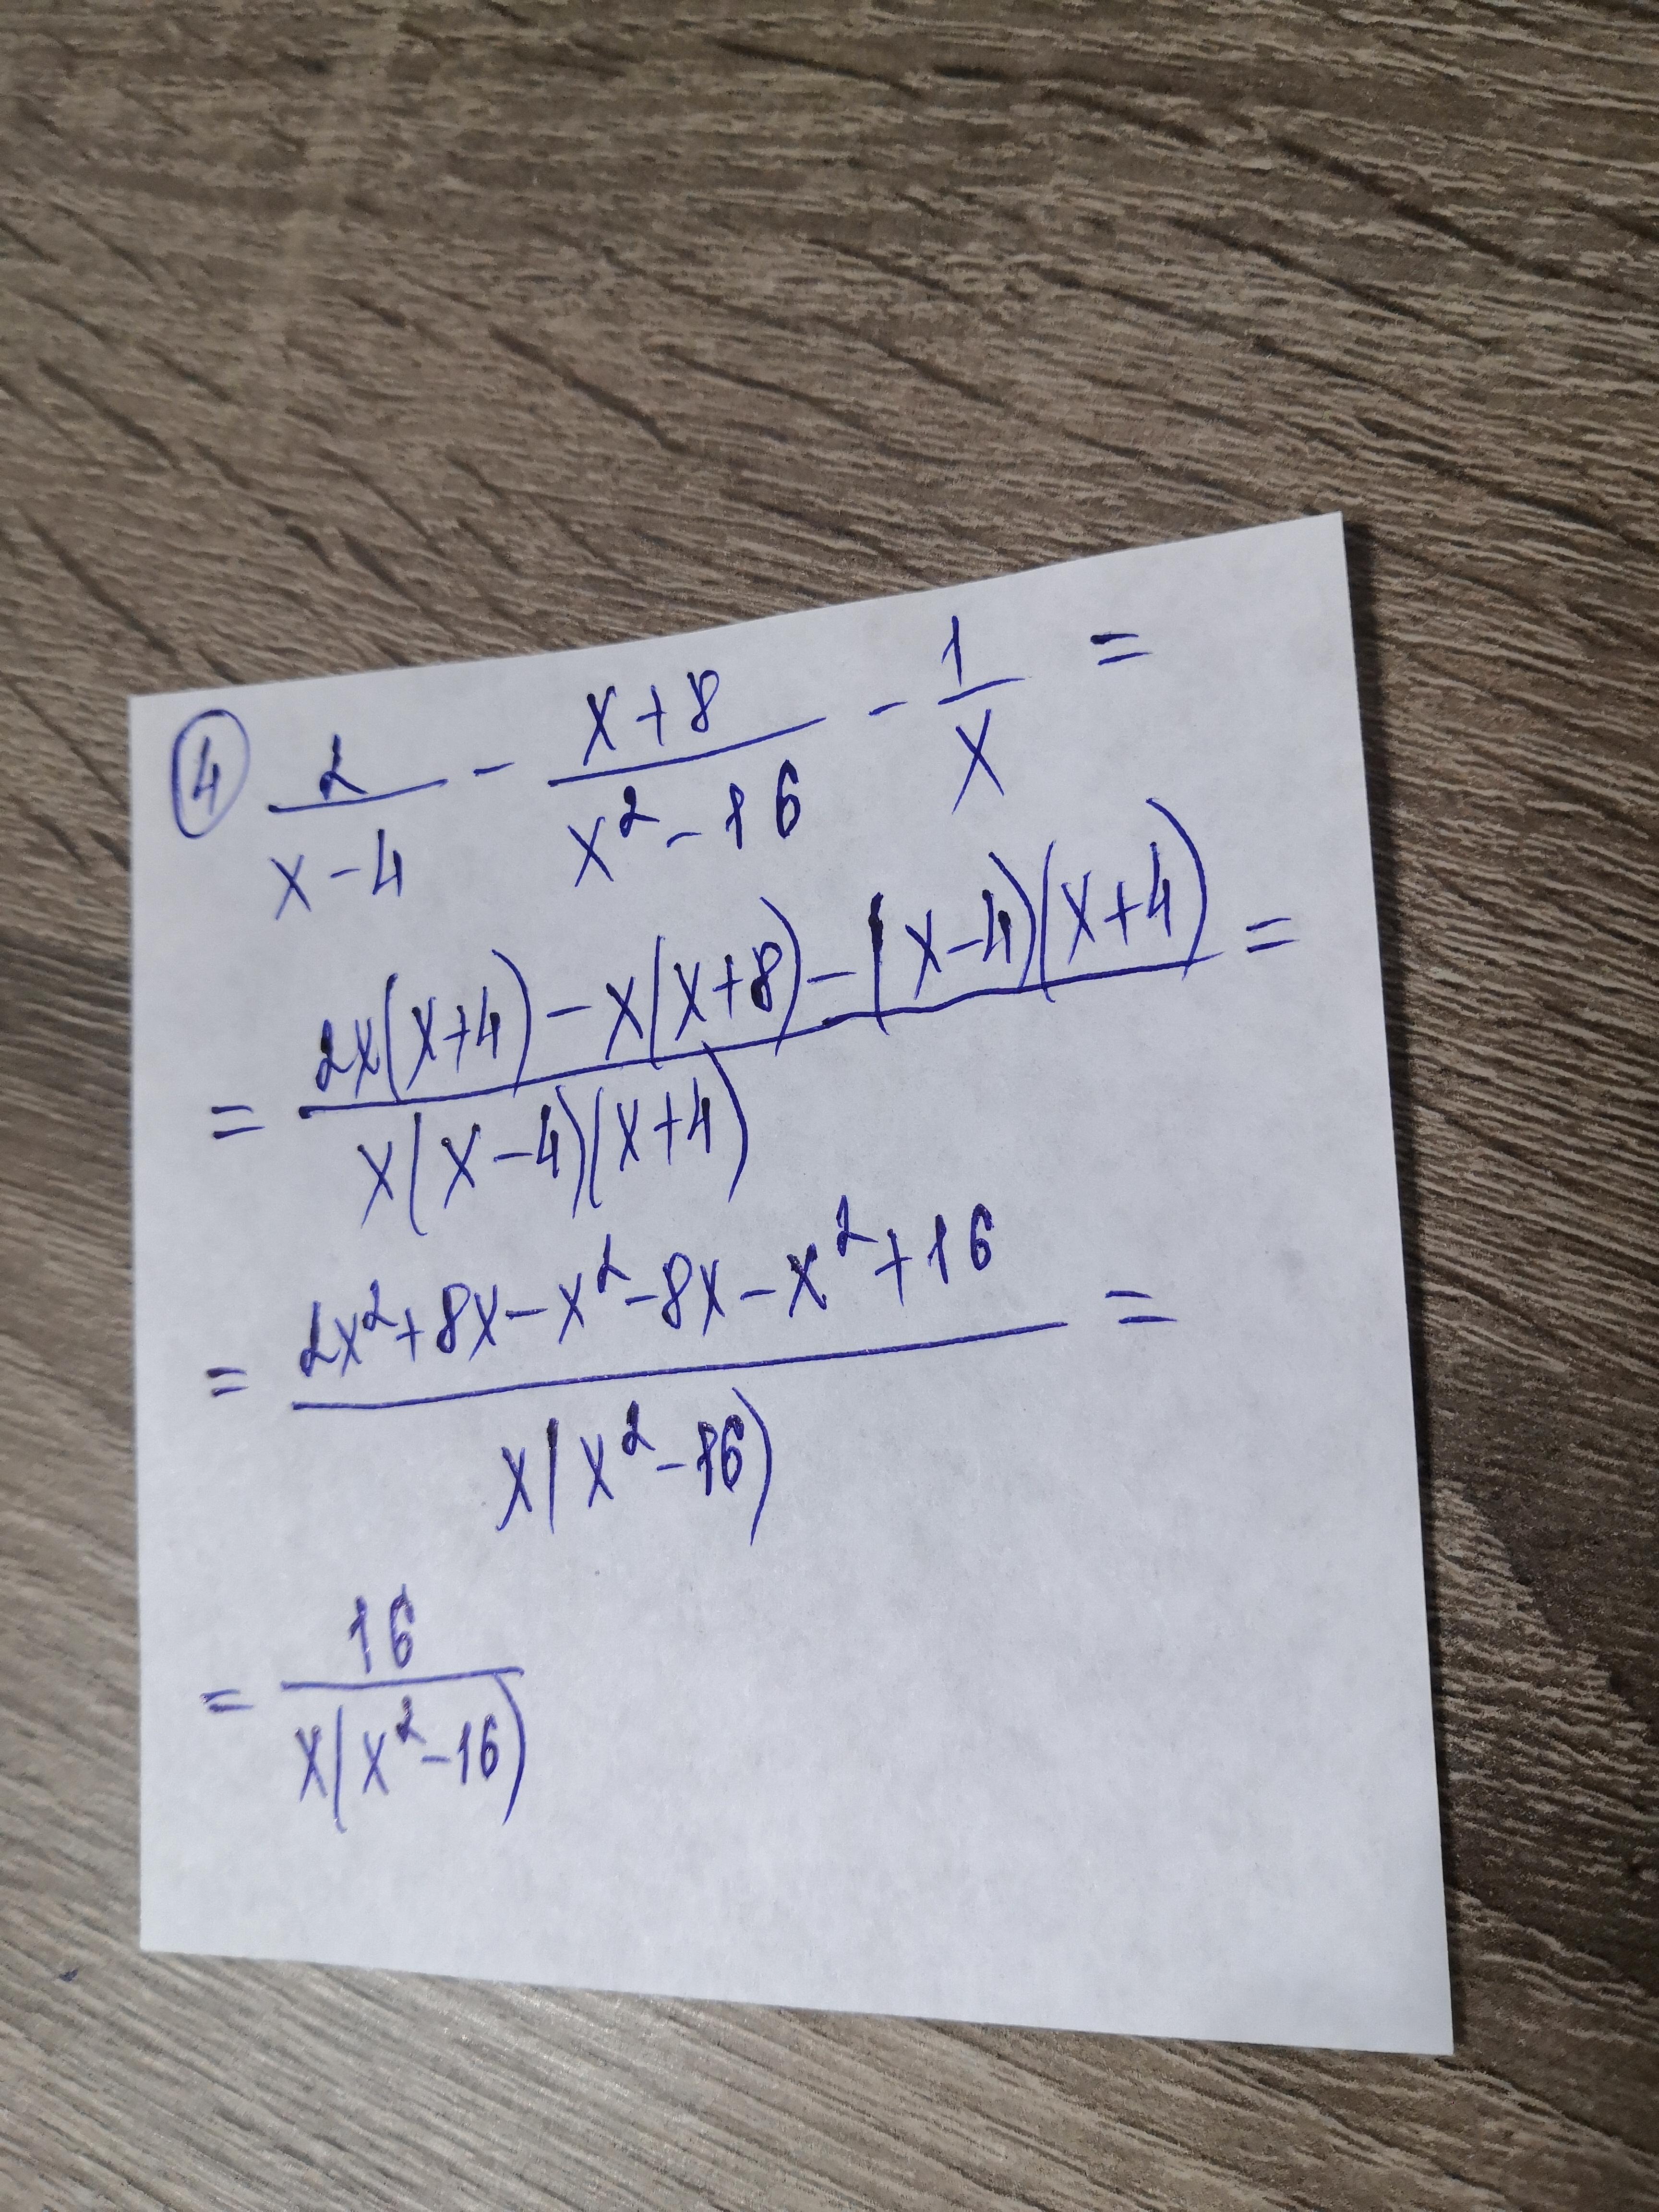 ④ 2/(x-4) - (x+8)/(x²-16) - 1/x =
= (2x(x+4) - x(x+8) - (x-4)(x+4))/(x(x-4)(x+4)) =
= (2x²+8x-x²-8x-x²+16)/(x(x²-16)) =
= 16/(x(x²-16))